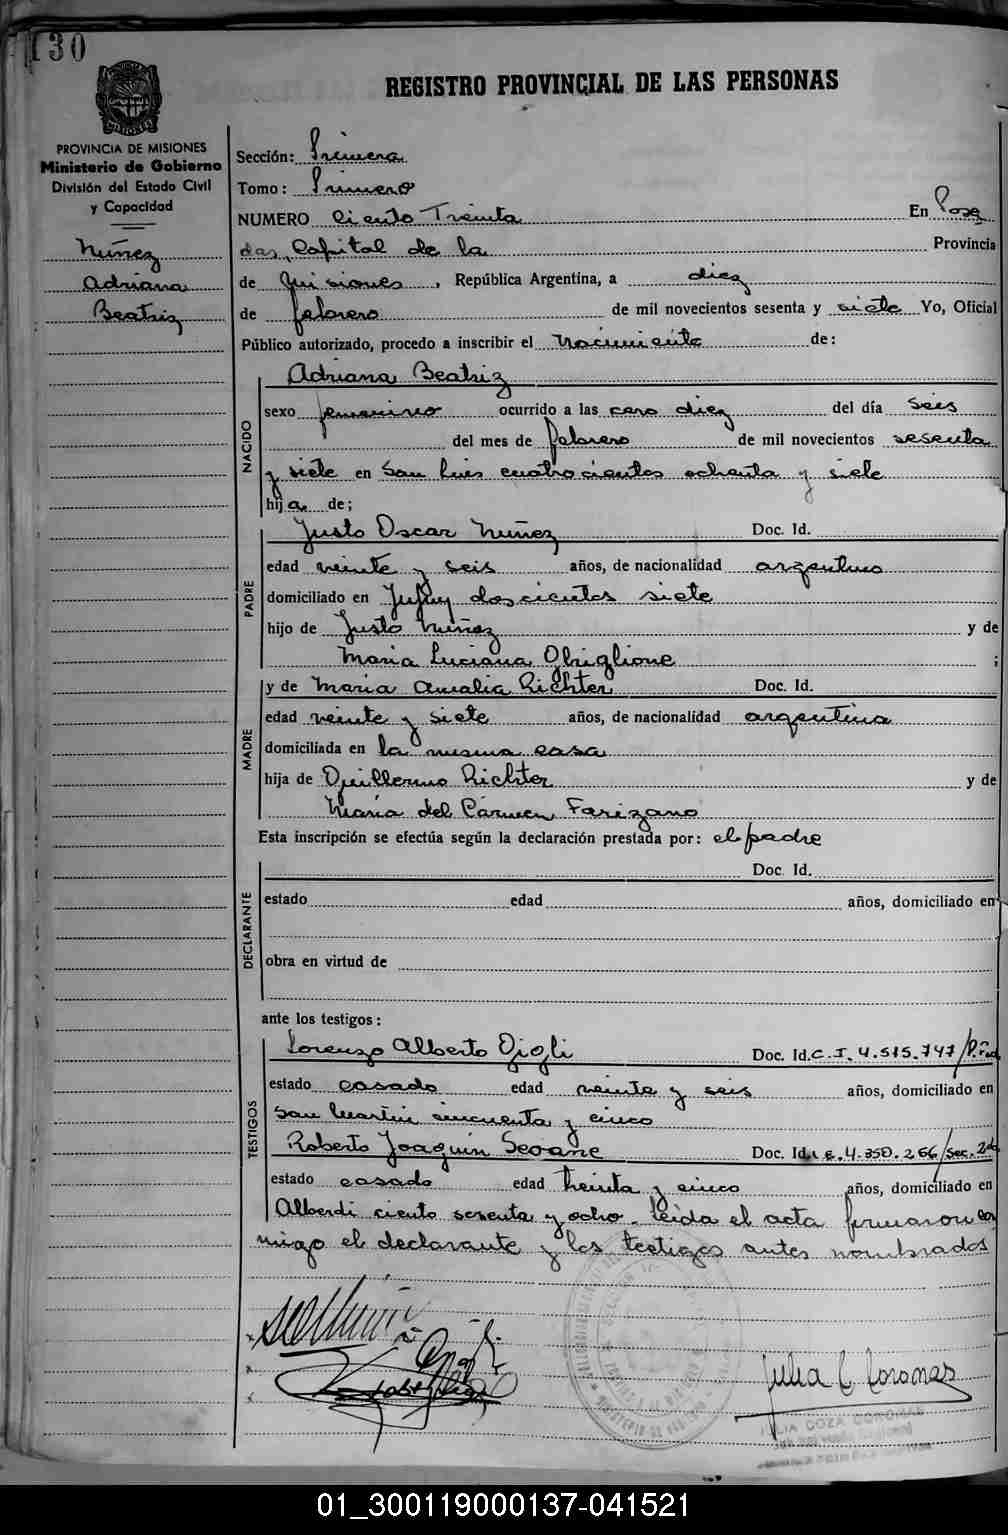 130
REGISTRO PROVINCIAL DE LAS PERSONAS
PROVINCIA DE MISIONES
Ministerio de Gobierno
División del Estado Civil
y Capacidad
Núñez
Adriana
Beatriz
Sección: Primera
Tomo: Primero
NUMERO Ciento Treinta En Posa
das, Capital de la Provincia
de Misiones, República Argentina, a diez
de febrero de mil novecientos sesenta y siete Yo, Oficial
Público autorizado, procedo a inscribir el nacimiento de:
NACIDO
Adriana Beatriz
sexo femenino ocurrido a las cero diez del día seis
del mes de febrero de mil novecientos sesenta
y siete en San Luis cuatrocientos ochenta y siete
hija de;
PADRE
Justo Oscar Núñez Doc. Id.
edad veinte y seis años, de nacionalidad argentino
domiciliado en Jujuy doscientos siete
hijo de Justo Núñez y de
María Luciana Ghiglione ;
MADRE
y de María Amalia Richter Doc. Id.
edad veinte y siete años, de nacionalidad argentina
domiciliada en la misma casa
hija de Guillermo Richter y de
María del Cármen Farizano
Esta inscripción se efectúa según la declaración prestada por: el padre
DECLARANTE
Doc. Id.
estado edad años, domiciliado en
obra en virtud de
ante los testigos:
TESTIGOS
Lorenzo Alberto Gigli Doc. Id. C.I. 4.515.747/
estado casado edad veinte y seis años, domiciliado en
San Martín cincuenta y cinco
Roberto Joaquín Seoane Doc. Id. 4.350.266/Sec. 2da
estado casado edad treinta y cinco años, domiciliado en
Alberdi ciento sesenta y ocho. Leida el acta firmaron con
migo el declarante y los testigos antes nombrados
Julia C Coronas
JULIA COZA CORONAS
01_300119000137-041521